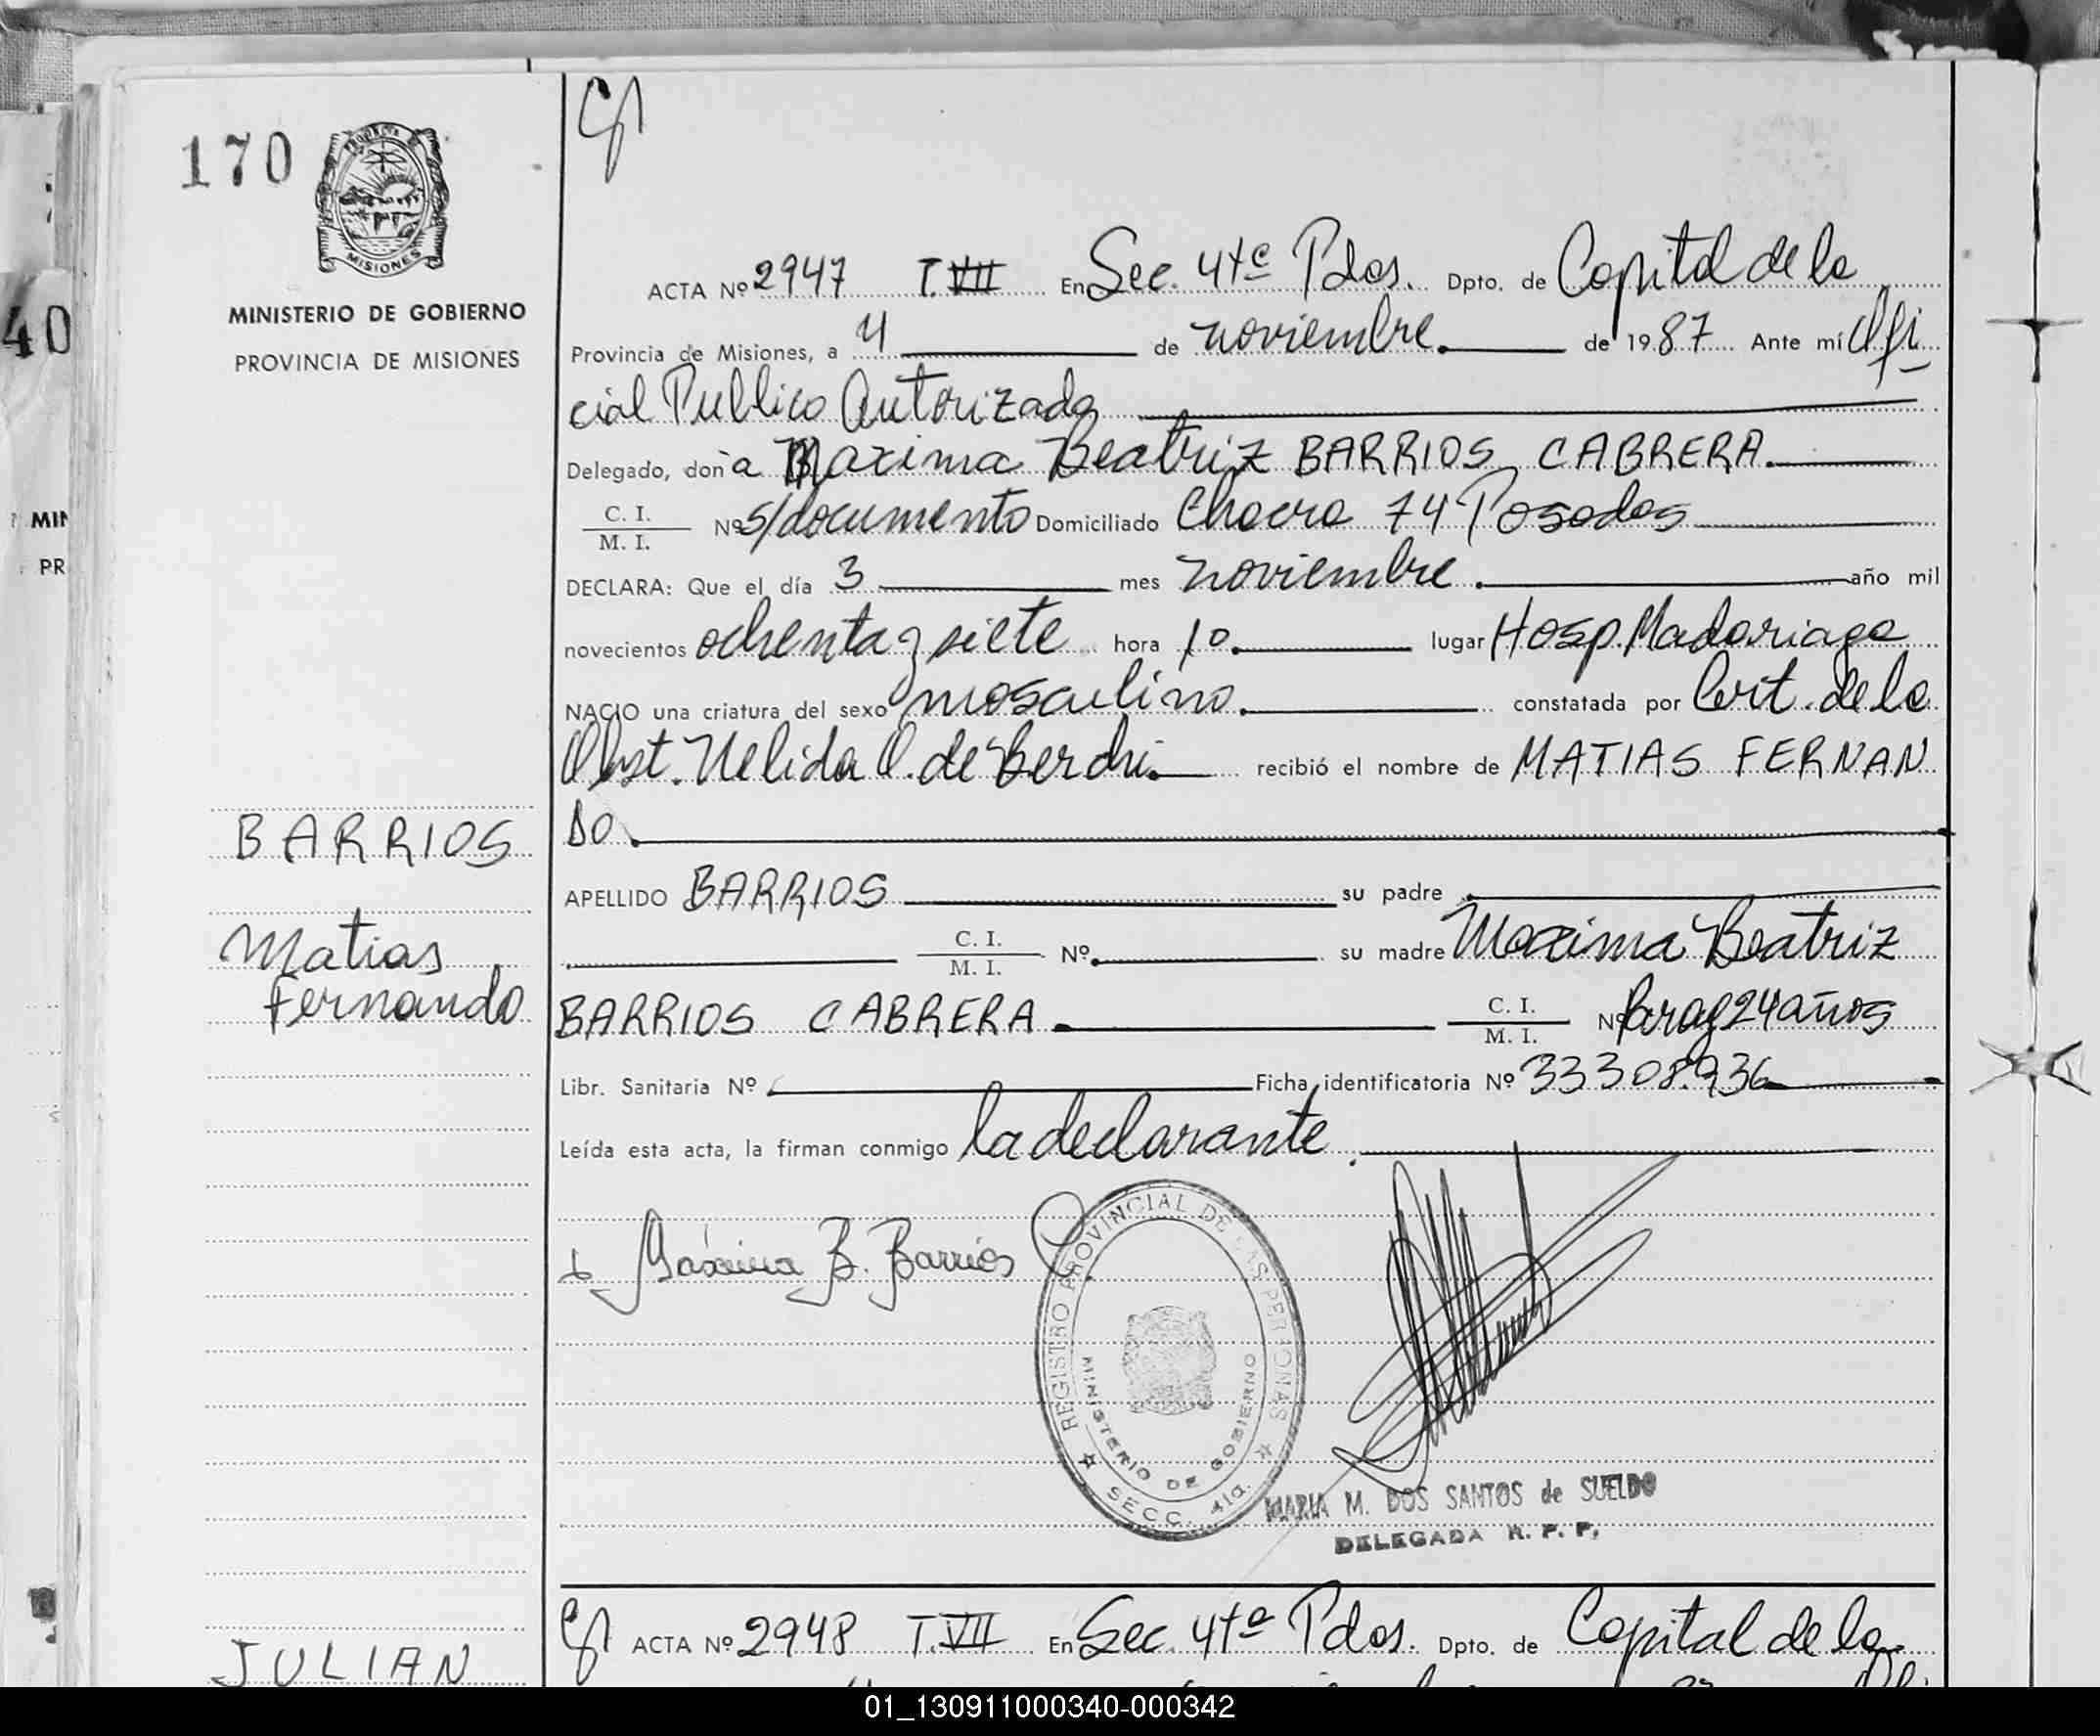 170
MISIONES
MINISTERIO DE GOBIERNO
PROVINCIA DE MISIONES
40
MIN
PR
BARRIOS
Matias
Fernando
JULIAN
ACTA Nº 2947 T. VII En Sec. 4ta Pdas. Dpto. de Capital de la
Provincia de Misiones, a 4 de noviembre. de 1987 Ante mí Ofi
cial Publico Autorizado
Delegado, don a Maxima Beatriz BARRIOS CABRERA.
C. I.
M. I. Nº s/documento Domiciliado Chacra 74 Posadas
DECLARA: Que el día 3 mes noviembre. año mil
novecientos ochenta y siete hora 10. lugar Hosp. Madariaga
NACIO una criatura del sexo masculino. constatada por Cert. de la
Obst. Nelida O. de recibió el nombre de MATIAS FERNAN
DO.
APELLIDO BARRIOS su padre
C. I.
M. I. Nº su madre Maxima Beatriz
BARRIOS CABRERA. C. I.
M. I. Nº Parag 24 años
Libr. Sanitaria Nº Ficha identificatoria Nº 33308.936
Leída esta acta, la firman conmigo la declarante.
Máxima B. Barrios C.
REGISTRO PROVINCIAL DE LAS PERSONAS
MINISTERIO DE GOBIERNO
SECC. 4ta.
MARIA M. DOS SANTOS de SUELDO
DELEGADA R. P. P.
ACTA Nº 2948 T. VII En Sec. 4ta Pdas. Dpto. de Capital de la
01_130911000340-000342